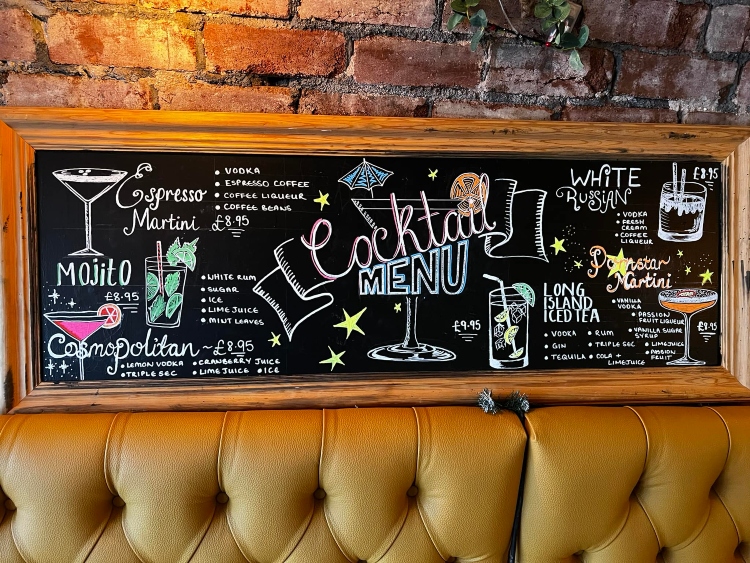 Cocktail
MENU
Espresso
Martini £8.95
• VODKA
• ESPRESSO COFFEE
• COFFEE LIQUEUR
• COFFEE BEANS
MOJITO
£8.95
• WHITE RUM
• SUGAR
• ICE
• LIME JUICE
• MINT LEAVES
Cosmopolitan ~ £8.95
• LEMON VODKA • CRANBERRY JUICE
• TRIPLE SEC • LIME JUICE • ICE
£9.95
LONG
ISLAND
ICED TEA
• VODKA • RUM
• GIN • TRIPLE SEC
• TEQUILA • COLA +
LIMEJUICE
WHITE
RUSSIAN
£8.95
• VODKA
• FRESH
CREAM
• COFFEE
LIQUEUR
Pornstar
Martini
• VANILLA
VODKA
• PASSION
FRUIT LIQUEUR
• VANILLA SUGAR
SYRUP
• LIMEJUICE
• PASSION
FRUIT
£8.95